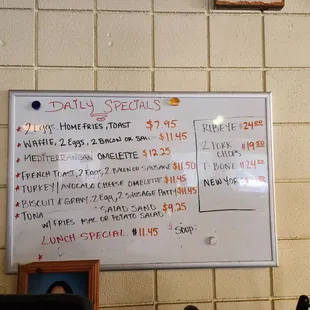 DAILY SPECIALS
2 EGGS. HOMEFRIES, TOAST $7.95
WAFFLE, 2 EGGS, 2 BACON OR SAU. $11.45
MEDITERRANEAN OMELETTE $12.25
FRENCH TOAST, 2 EGGS, 2 BACON OR SAUSAGE $11.50
TURKEY/AVOCADO CHEESE OMELETTE $11.45
BISCUIT & GRAVY, 2 EGGS, 2 SAUSAGE PATTY $11.45
TUNA SALAD SAND $9.25
W/ FRIES MAC OR POTATO SALAD
LUNCH SPECIAL $11.45 Soup.
RIBEYE $24.00
2 PORK CHOPS $19.50
T-BONE $24.00
NEW YORK